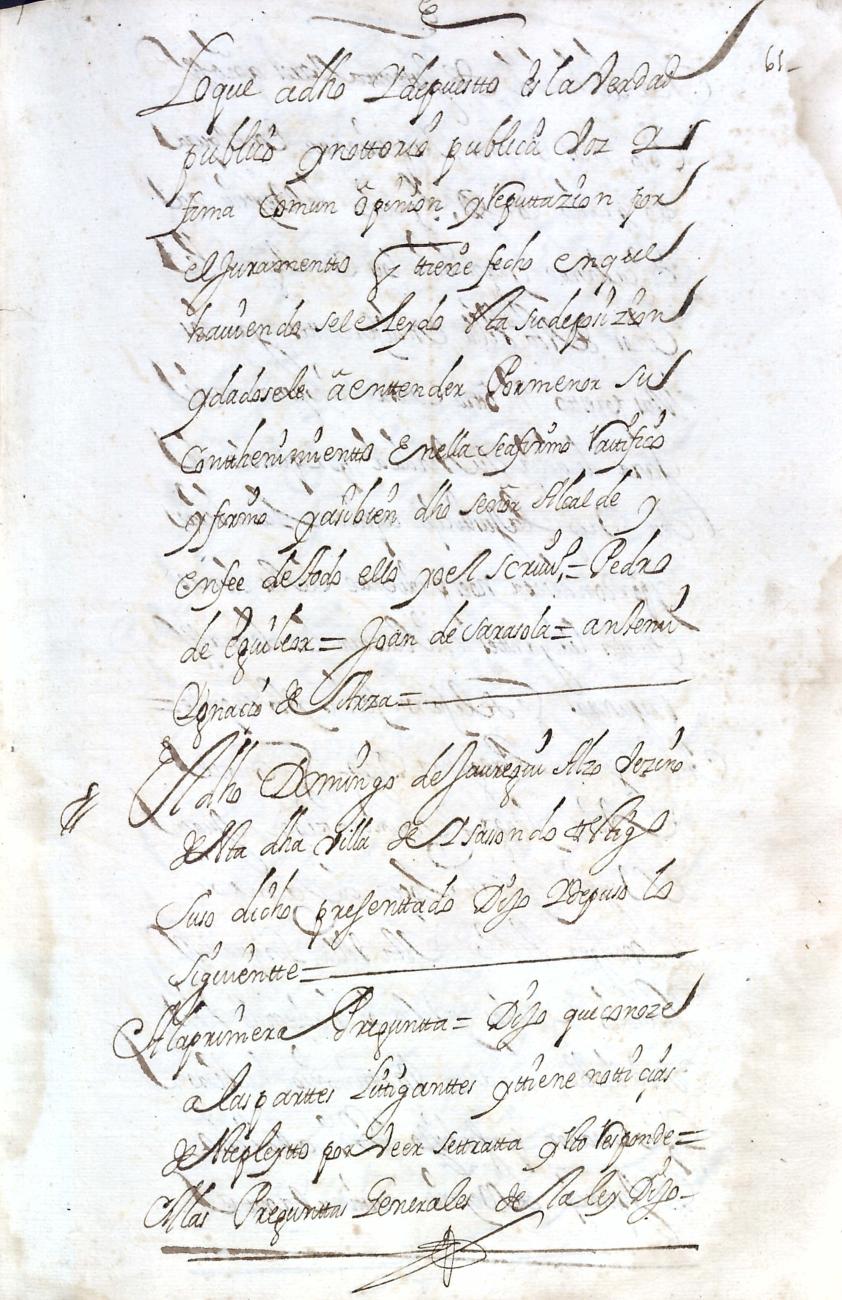 61-
Lo que a dho Y depuestto es la Verdad
publico y nottorio publica Voz y
fama Comun opinion y Reputtazion por
el Juramentto q ttiene fecho en que
hauiendosele Leydo esta su deposizion
y dadosele a enttender Por menor su
Contthenimientto En ella se afirmo Ratifico
y firmo y asi bien dho señor Alcalde y
en fee de todo ello yo el scriuno = Pedro
de eguileor = Joan de sarasola = antemi
Ygnacio de Arza =
El dho Domingo de Jauregui Alzo Vezino
de esta dha Villa de Ysasondo ttestigo
suso dicho presenttado Dijo Y depuso lo
siguientte =
A la primera Preguntta = Dijo que conoze
a las parttes Littiganttes y ttiene notticias
de este pleytto por Veer se ttratta y esto Responde =
A las Preguntas Generales de la ley Dijo -